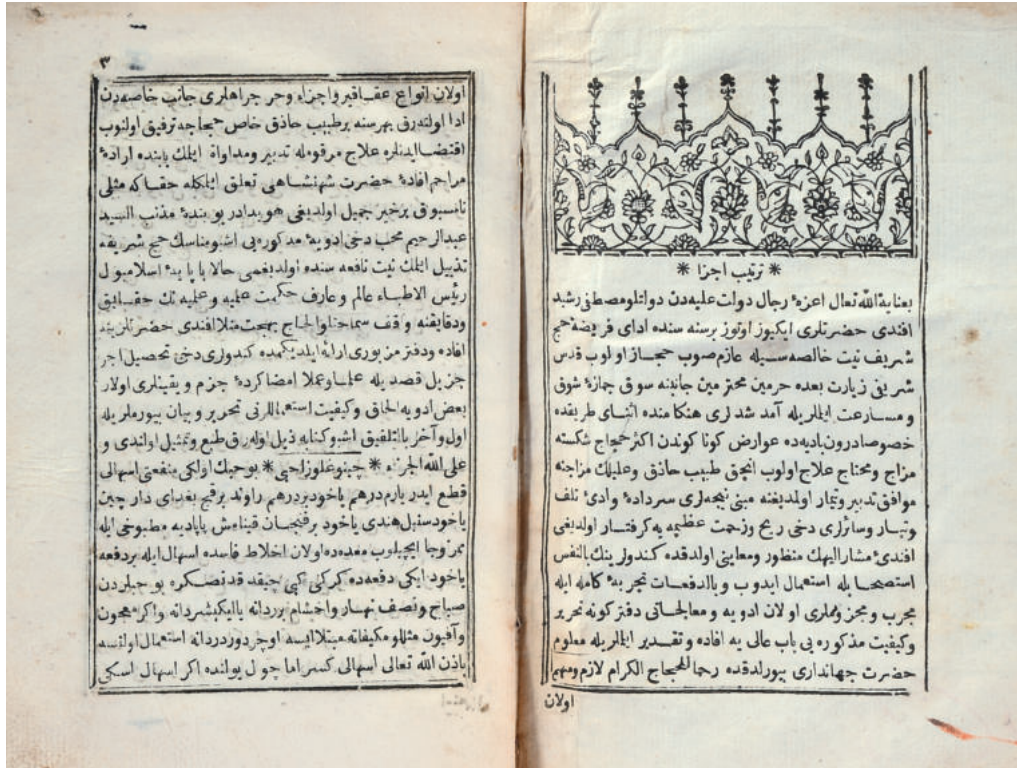 * ترتيب اجزا *
بعناية الله تعالى اعزهٔ رجال دولت عليه دن دولتلو مصطفى رشيد
افندى حضرتلرى ايكيوز اوتوز برسنه سنده اداى فريضهٔ حج
شريف نيت خالصه سيله عازم صوب حجاز اولوب قدس
شريفى زيارت بعده حرمين محترمين جانبنه سوق جمازهٔ شوق
و مسارعت ايلملريله آمد شدلرى هنكامنده اثناى طريقده
خصوصا درون باديه ده عوارض كونا كوندن اكثر حجاج شكسته
مزاج ومحتاج علاج اولوب انجق طبيب حاذق وعليلك مزاجنه
موافق تدبير وتيمار اولمديغنه مبنى نيجه لرى سردادهٔ وادئ تلف
وتبار وسائرلرى دخى رنج وزحمت عظيمه يه كرفتار اولديغى
افندئ مشار اليهك منظور ومعاينى اولدقده كندولرينك بالنفس
استصحابله استعمال ايدوب و بالدفعات تجربهٔ كامله ايله
مجرب ومجزوملرى اولان ادويه و معالجاتى دفتر كونه تحرير
وكيفيت مذكوره يى باب عالى يه افاده وتقدير ايلملريله معلوم
حضرت جهاندارى بيورلدقده رحما للحجاج الكرام لازم ومهم
اولان
٣
اولان انواع عقاقير واجزاء وجر جراحلرى جانب خاصه دن
ادا اولنه رق بهرسنه برطبيب حاذق خاص حجاجه ترفيق اولنوب
اقتضا ايدنلره علاج مرقومله تدبير ومداواة ايلمك بابنده ارادهٔ
مراحم افادهٔ حضرت شهنشاهى تعلق ايلمكله حقاكه مثلى
نامسبوق برخير جميل اولديغى هويدادر بو بندهٔ مذنب السيد
عبد الرحيم محب دخى ادويهٔ مذكوره يى اشبو مناسك حج شريفه
تذييل ايلمك نيت نافعه سنده اولديغمى حالا پا پايهٔ اسلامبول
رئيس الاطباء عالم و عارف حكمت علميه و عمليه نك حقايق
ودقايقنه واقف سماحتلو الحاج بهجت منلا افندى حضرتلرينه
افاده ودفتر مزبورى ارائه ايلديكمده كندولرى دخى تحصيل اجر
جزيل قصديله علما وعملا امضا كردهٔ جزم و يقينلرى اولان
بعض ادويه الحاق وكيفيت استعماللرنى تحرير و بيان بيورملريله
اول وآخر بالتلفيق اشبو كتابه ذيل اوله رق طبع وتمثيل اولندى و
على الله الجرته * چينو غلوز احبى * بوحبك اولكى منفعتى اسهالى
قطع ايدر يارم درهم ياخود بردرهم راوند برفنج بغداى دارچين
ياخود سنبل هندى ياخود برفنجان قيناءش پاپاديه مطبوخى ايله
ايچيلوب معده ده اولان اخلاط فاسده اسهال ايله بردفعه
ياخود ايكى دفعه ده كركى كبى چيقدقدنصكره بو حبلردن
صباح ونصف نهار واخشام بردانه ياايكيشردانه واكر معجون
وآفيون مثللو مكيفاته مبتلا ايسه اوچر دوردر دانه استعمال اولنسه
باذن الله تعالى اسهالى كسر اما چول يولنده اكر اسهال اسكى